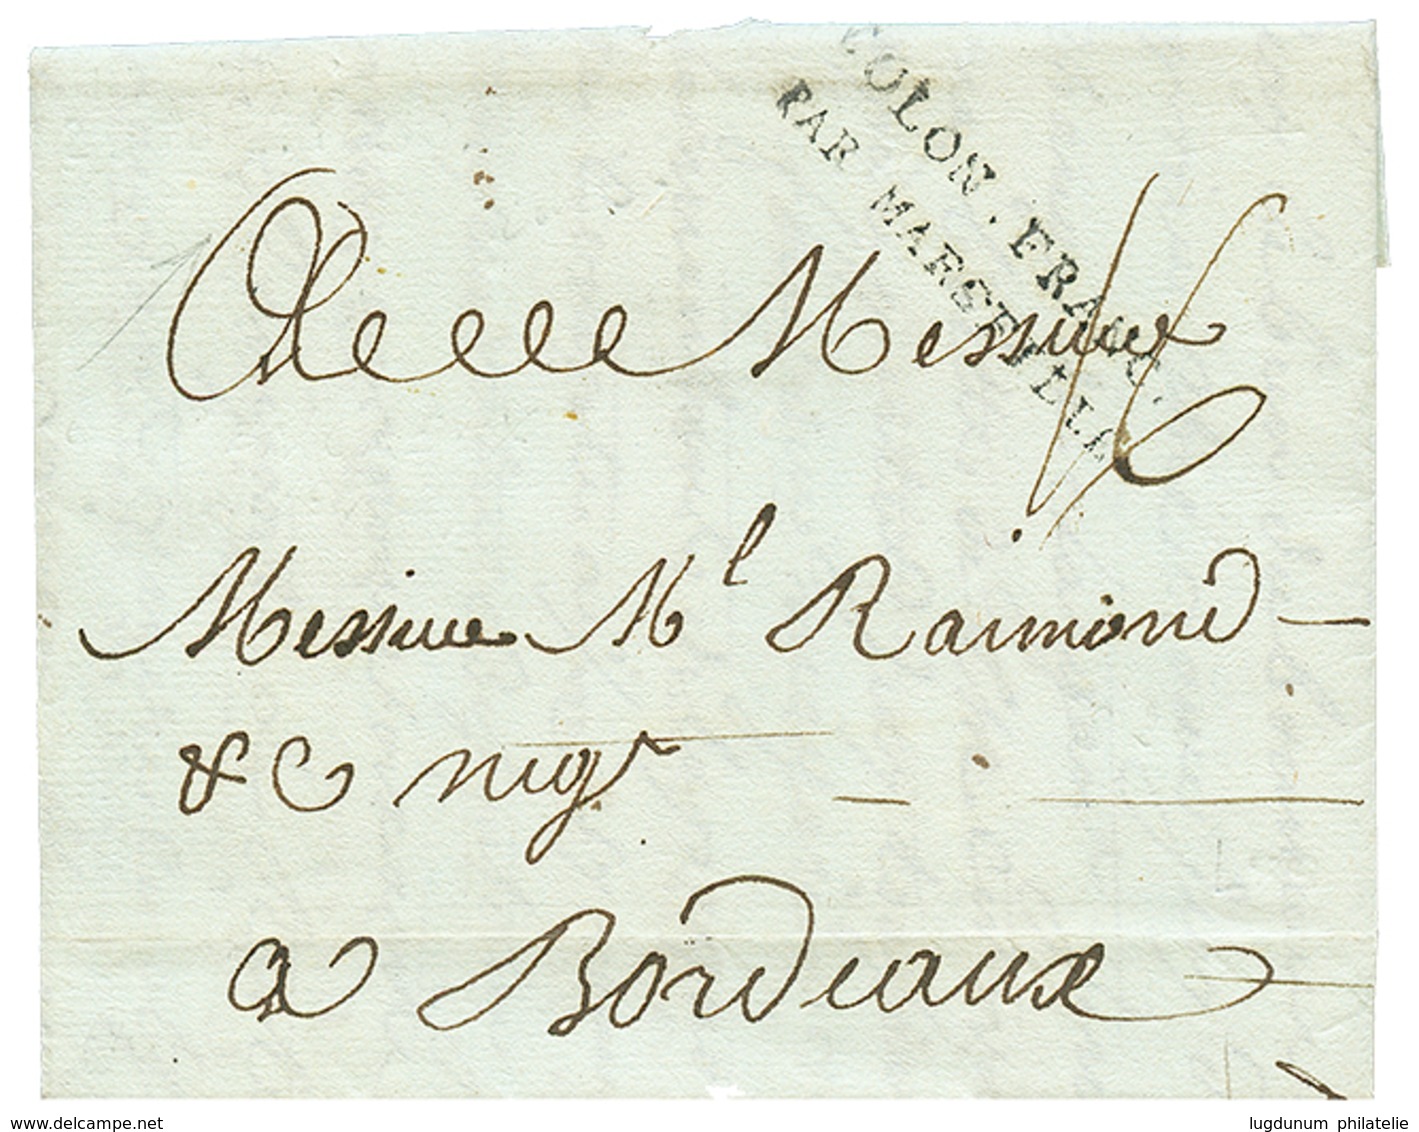 COLON. FRANC.
PAR MARSEILLE
16
A Messieurs
Messieurs Ml Raimond
& C negt
a Bordeaux
www.delcampe.net
lugdunum philatelie